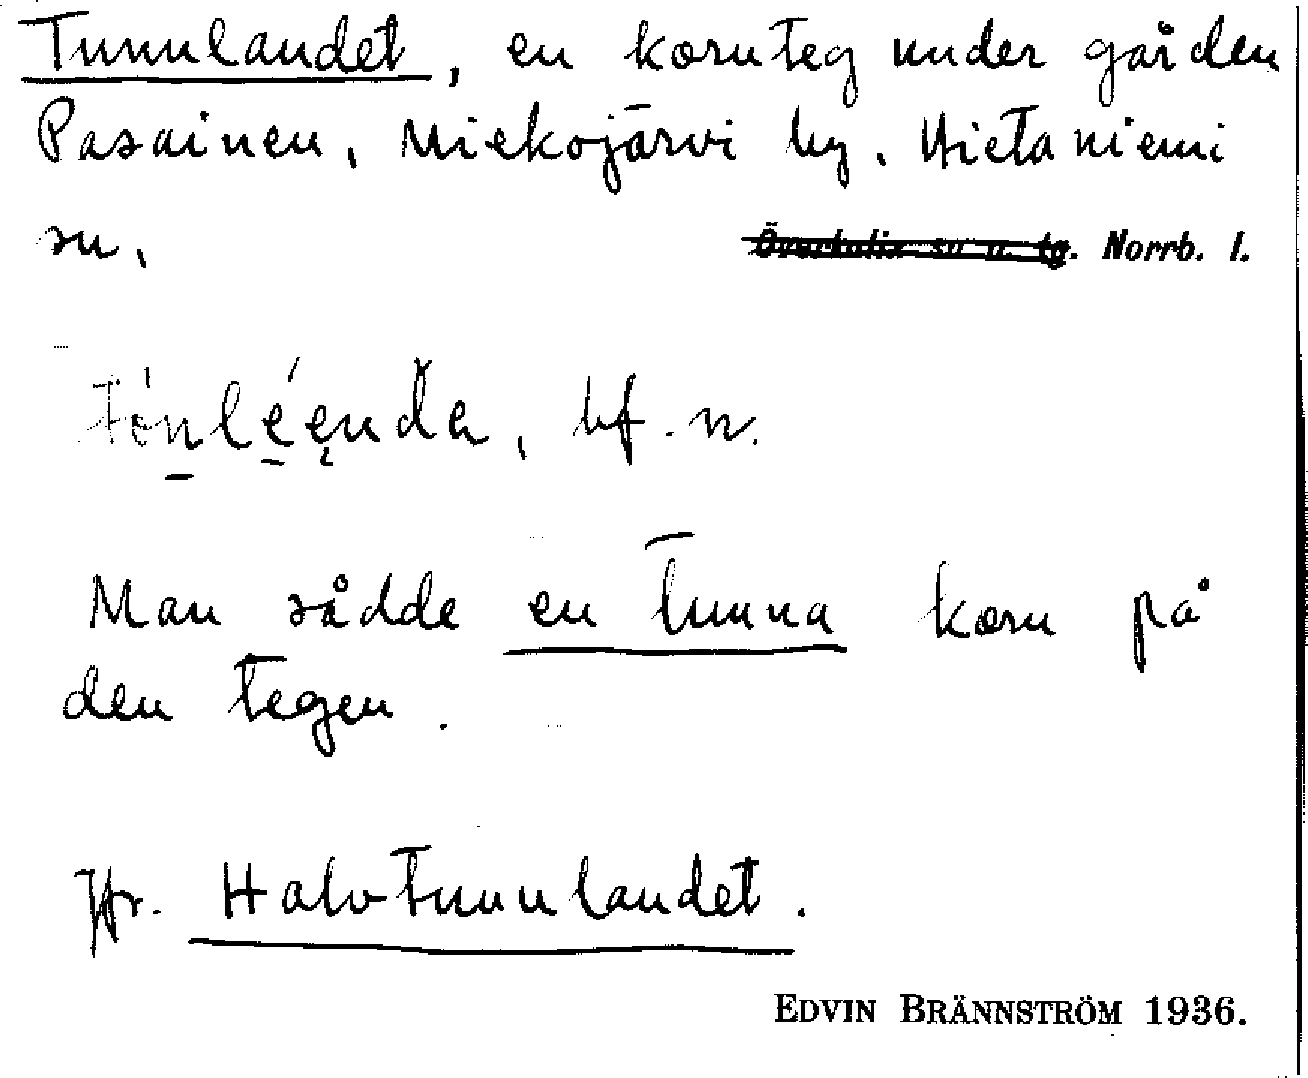 Tunnlandet, en kornteg under gården
Pasainen, Miekojärvi by, Hietaniemi
sn,
Överkalix sn o. tg. Norrb. l.
bf. n.
Man sådde en tunna korn på
den tegen.
Jfr. Halvtunnlandet.
EDVIN BRÄNNSTRÖM 1936.